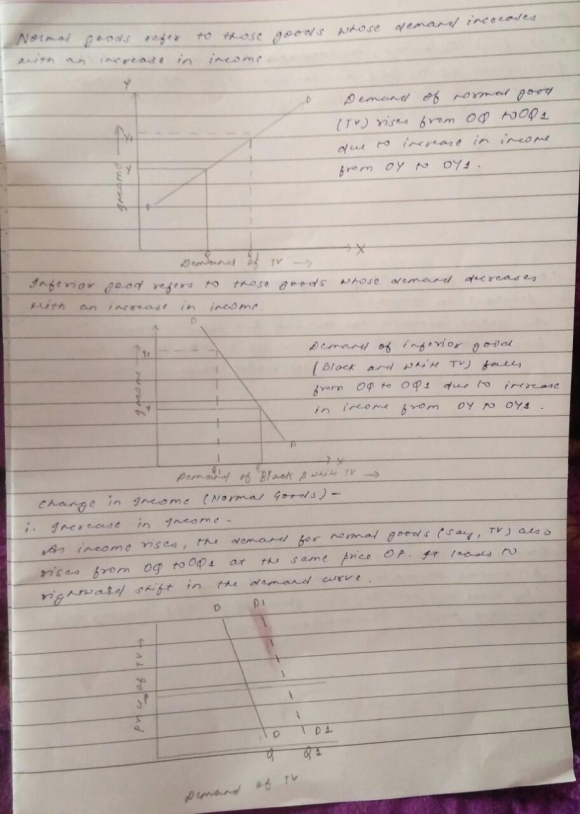 Normal goods refer to those goods whose demand increases
with an increase in income.
Y
D
Demand of normal good
(TV) rises from OQ to OQ1
due to increase in income
from OY to OY1.
Y1
Y
Income
D
Q
Q1
X
Demand of TV
Inferior good refers to those goods whose demand decreases
with an increase in income.
D
Y1
Demand of inferior good
(Black and white TV) falls
from OQ to OQ1 due to increase
in income from OY to OY1.
Income
Y
D
Q1
Q
X
Demand of Black & White TV
Change in Income (Normal Goods) -
i. Increase in Income -
As income rises, the demand for normal goods (say, TV) also
rises from OQ to OQ1 at the same price OP. It leads to
rightward shift in the demand curve.
D
D1
Price of TV
P
D
D1
Q
Q1
Demand of TV